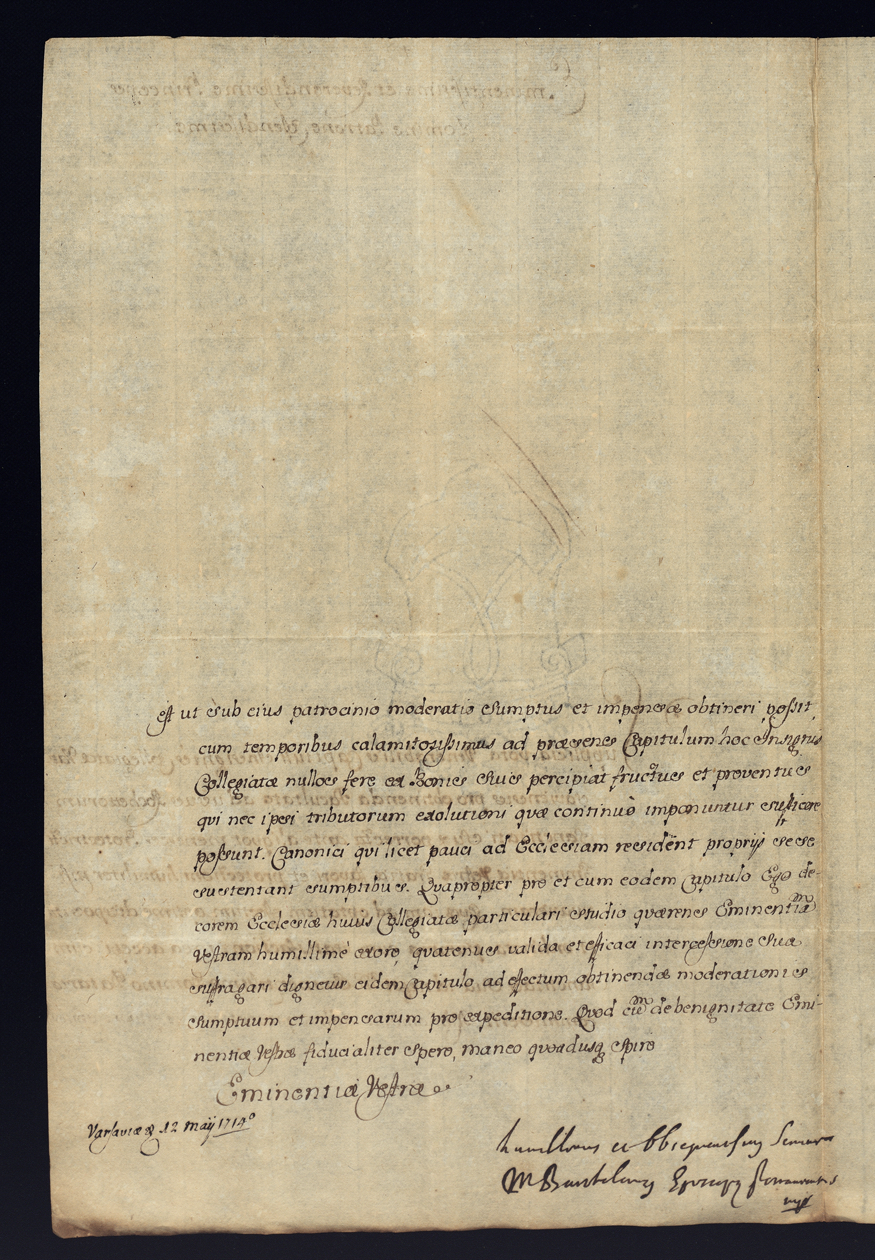 est ut sub eius patrocinio moderatio sumptus et impensæ obtineri possit,
cum temporibus calamitosissimus ad præsens Capitulum hoc Insignis
Collegiatæ nullos fere ex Bonis suis percipiat fructus et proventus
qui nec ipsi tributorum exolutioni quæ continuò imponuntur sufficere
possunt. Canonici qui licet pauci ad Ecclesiam resident proprijs sese
sustentant sumptibus. Quapropter pro et cum eodem Capitulo Ego de-
corem Ecclesiæ huius Collegiatæ particulari studio quærens Eminentiam
Vestram humillimè exoro, quatenus valida et efficaci intercessione sua
suffragari dignetur eidem Capitulo ad effectum obtinendæ moderationis
sumptuum et impensarum pro expeditione. Quod cum de benignitate Emi-
nentiæ Vestræ fiducialiter spero, maneo quoadusq spiro
Eminentiæ Vestræ
Varsaviæ 12 Maij 1714º
humillimus et
M